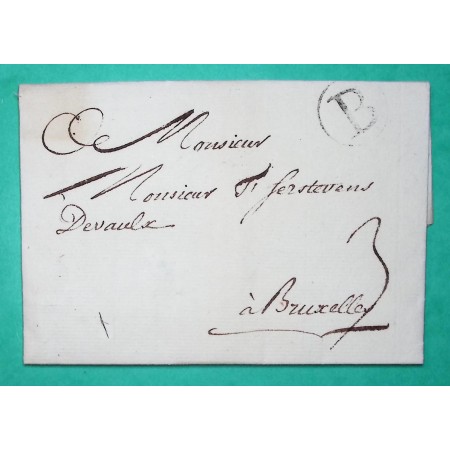 B
A Monsieur
Monsieur Serstevens
Devaulx
3
à Bruxelles